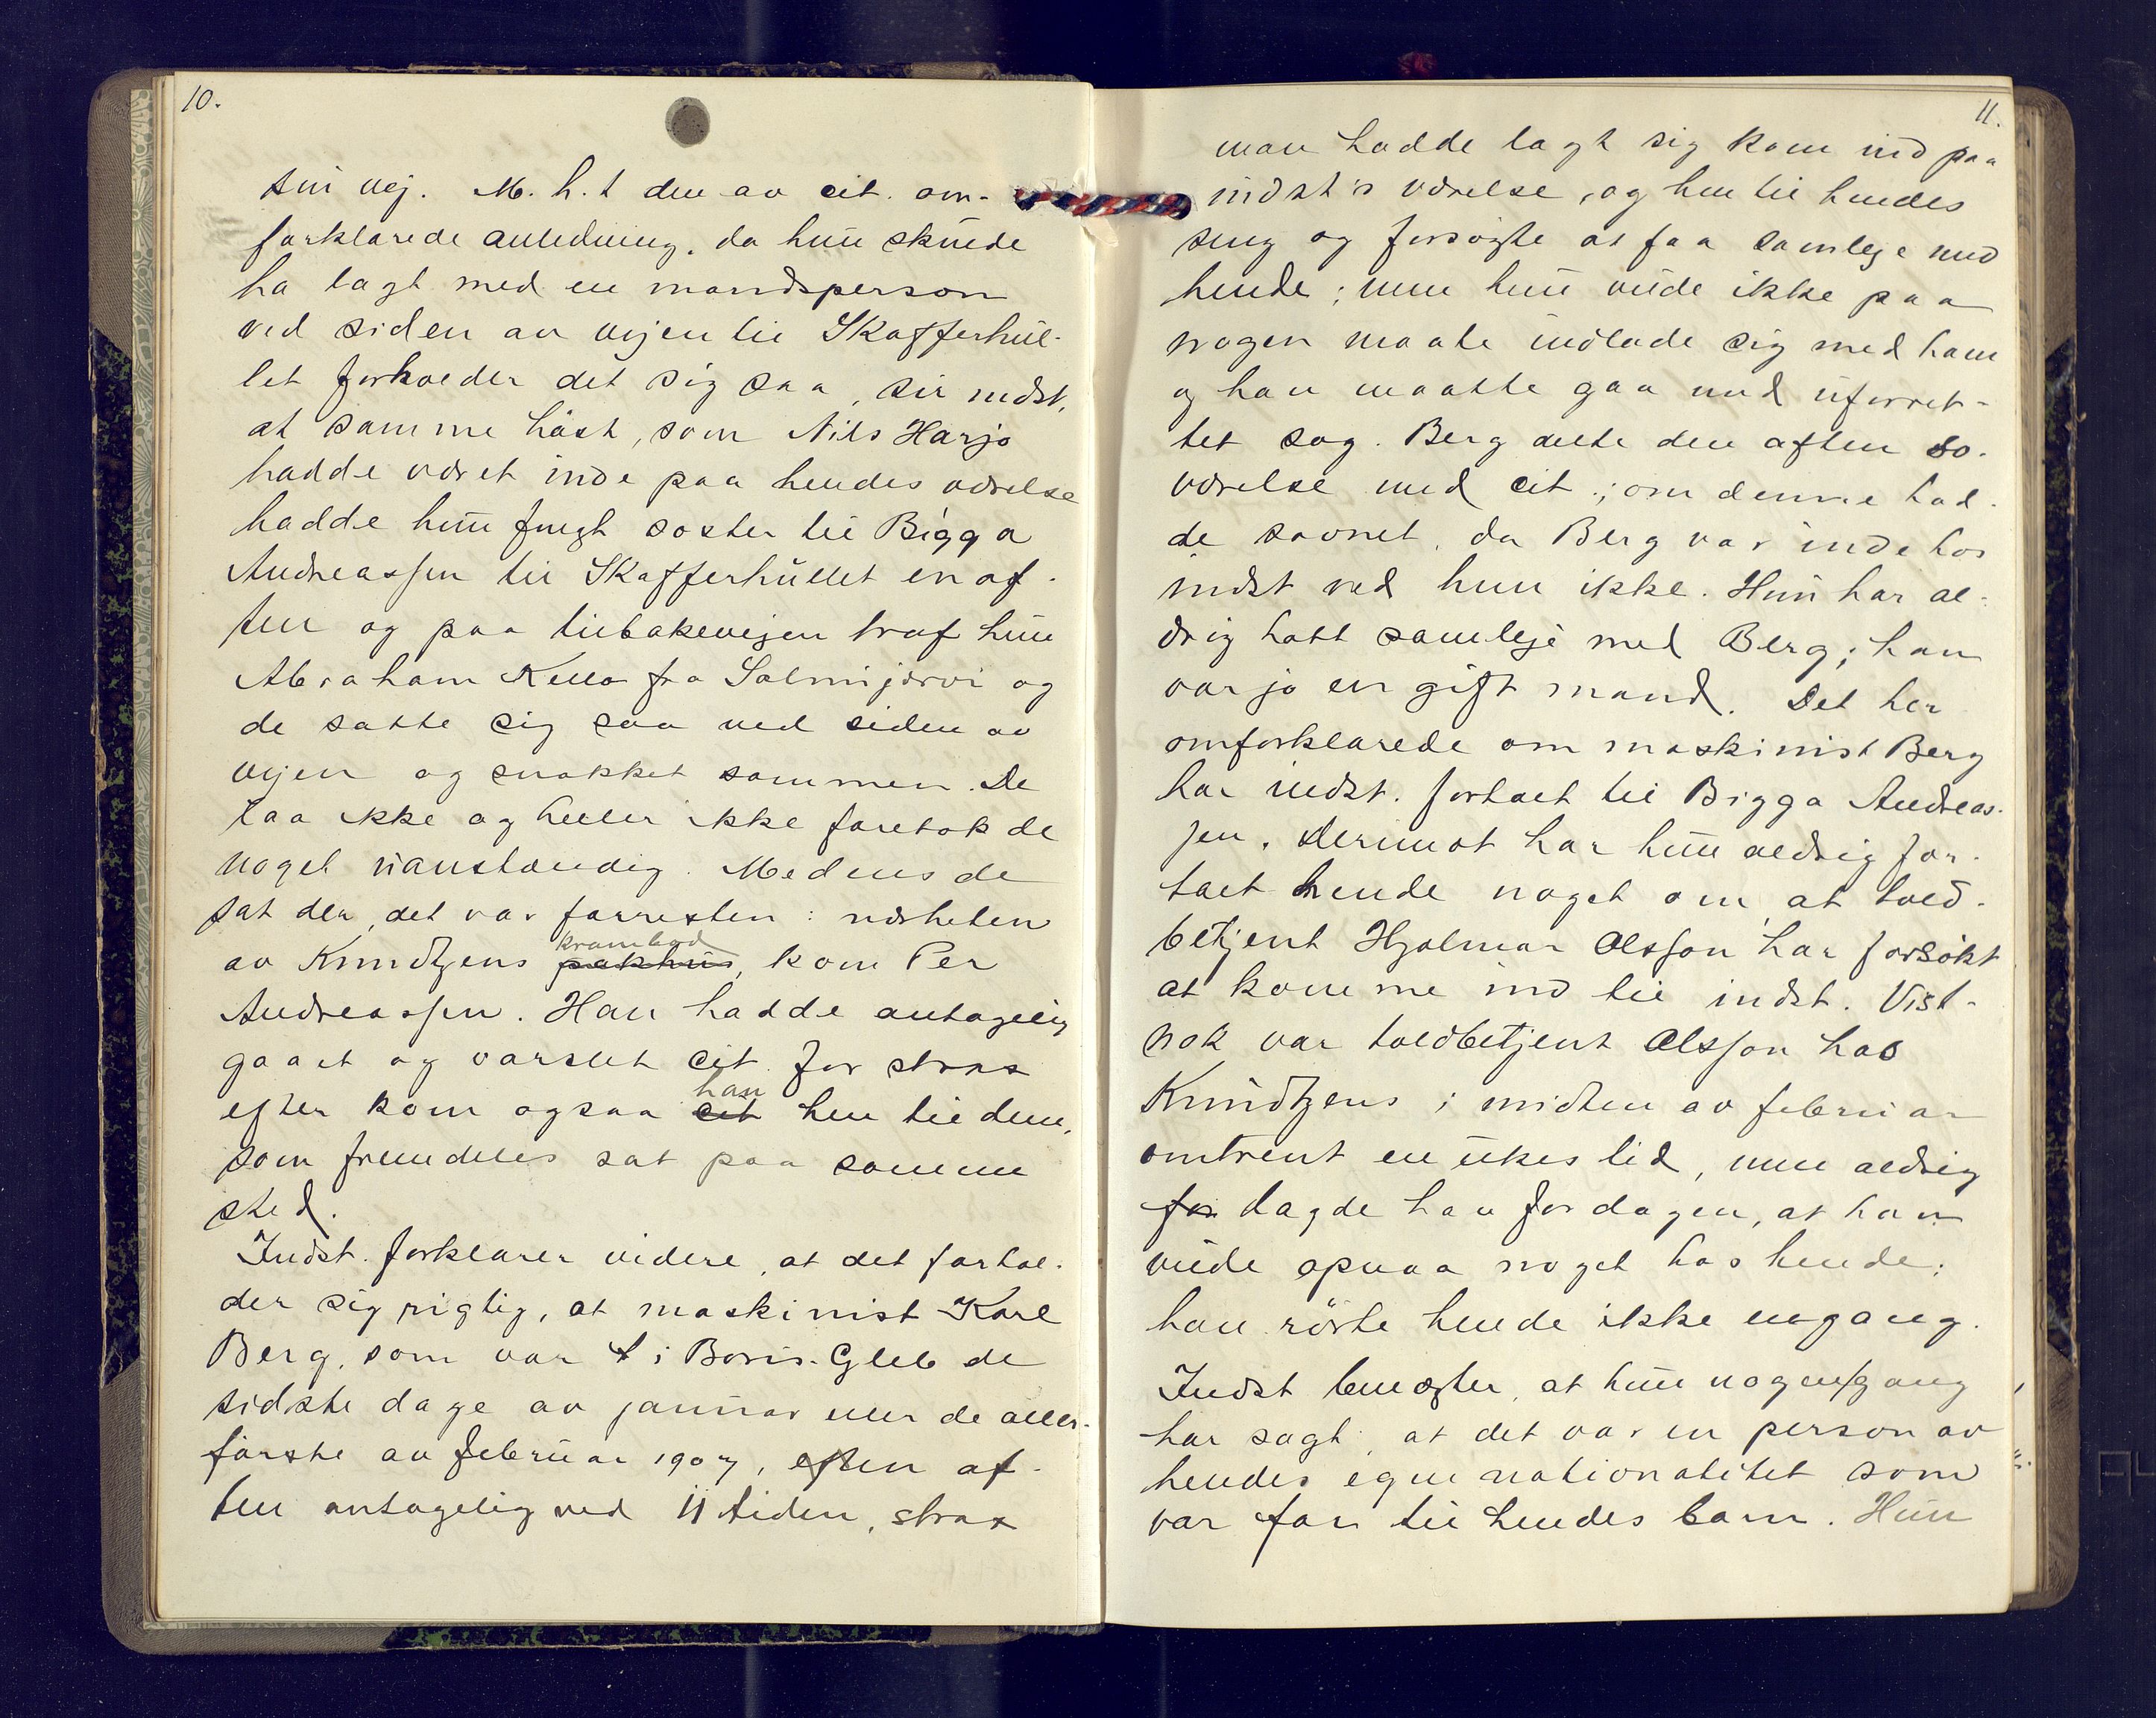 10.
sin vej. M. h. t den av cit. om-
forklarede anledning, da hun skulde
ha lagt med en mandsperson
ved siden av vejen til Skafferhul-
let forholder det sig saa, sir indst,
at samme höst, som Nils Harjo
hadde været inde paa hendes værelse
hadde hun fulgt söster til Bigga
Andreassen til Skafferhullet en af-
ten og paa tilbakevejen traf hun
Abraham Kello fra Salmijærvi og
de satte sig saa ved siden av
vejen og snakket sammen. De
laa ikke og heller ikke foretok de
noget uanstændig. Medens de
sat der, det var forresten i nærheten
av Knudtzens pakhus, krambod kom Per
Andreassen. Han hadde antagelig
gaaet og varslet cit for straks
efter kom ogsaa cit han hen til dem,
som fremdeles sat paa samme
sted.
Indst. forklarer videre, at det forhol-
der sig rigtig, at maskinist Karl
Berg, som var t i Boris-Gleb de
sidste dage av januar eller de aller-
förste av februar 1907, efter en af-
ten antagelig ved 11 tiden, strax
11.
man hadde lagt sig kom ind paa
indst's værelse, og hen til hendes
seng og forsögte at faa samleje med
hende; men hun vilde ikke paa
nogen maate indlade sig med ham
og han maatte gaa med uforret-
tet sag. Berg delte den aften so-
værelse med cit.; om denne had-
de savnet, da Berg var inde hos
indst ved hun ikke. Hun har al-
drig hatt samleje med Berg; han
var jo en gift mand. Det her
omforklarede om maskinist Berg
har indst. fortalt til Bigga Andreas-
sen. Derimot har hun aldrig for-
talt hende noget om, at told-
betjent Hjalmar Olsson har forsökt
at komme ind til indst. Vist-
nok var toldbetjent Olsson hos
Knudtzens i midten av februar
omtrent en ukes tid, men aldrig
for lagde han for dagen, at han
vilde opnaa noget hos hende;
han rörte hende ikke engang.
Indst benægter, at hun nogensgang
har sagt, at det var en person av
hendes egen nationalitet som
var far til hendes barn. Hun